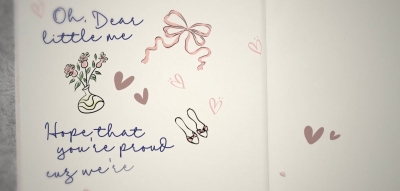 Oh, Dear
little me
Hope that
you're proud
cuz we're